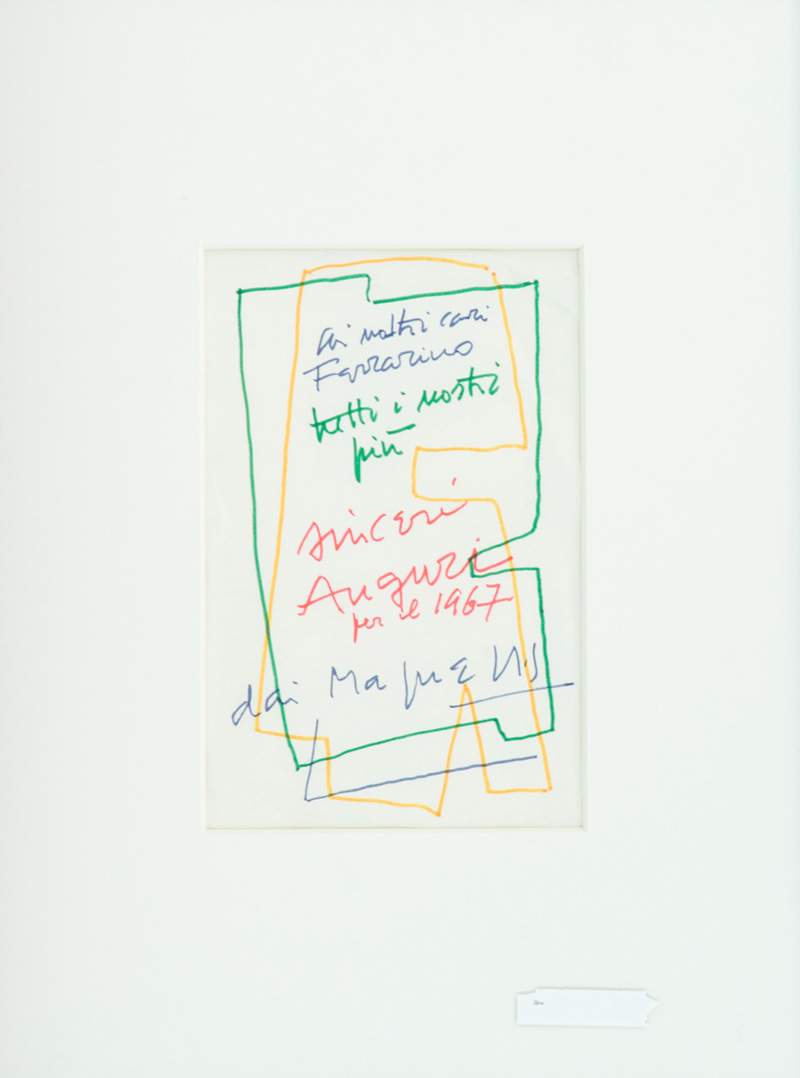 ai nostri cari
Ferrarino
tutti i nostri
più
sinceri
Auguri
per il 1967
dai Magnelli